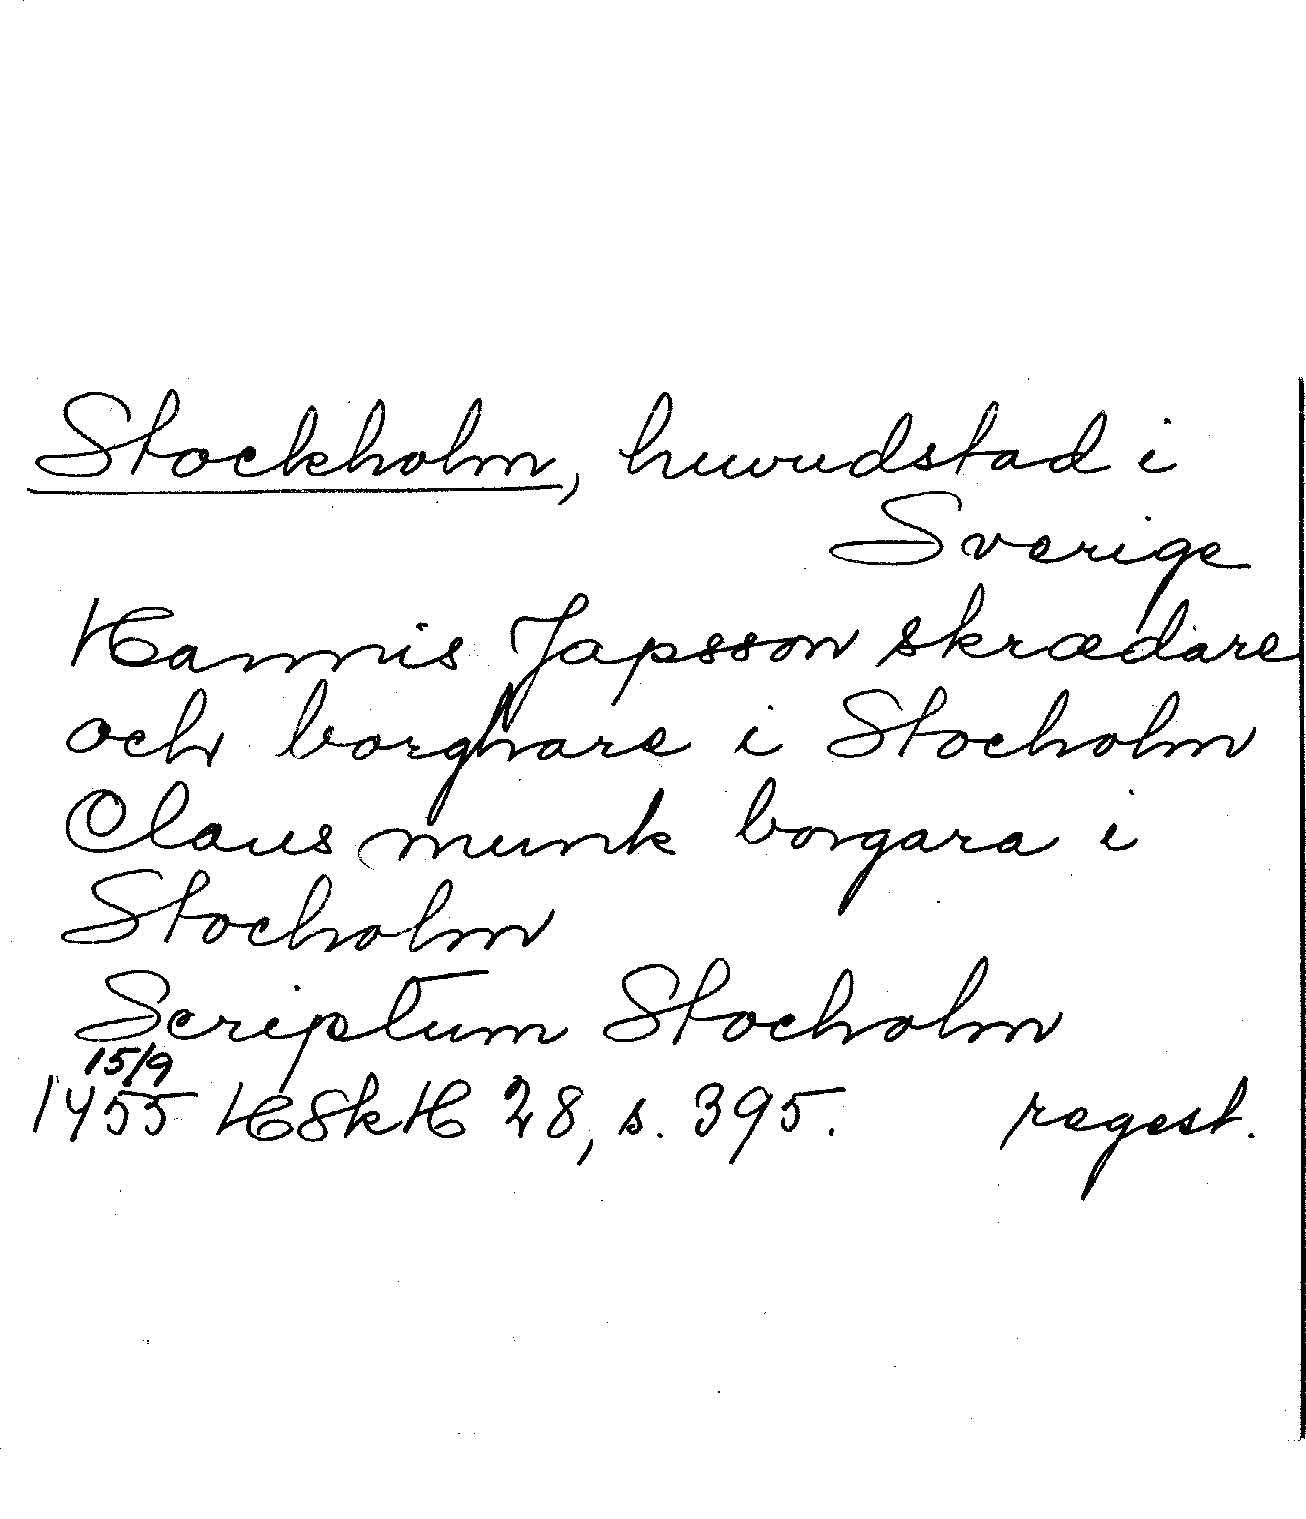 Stockholm, huvudstad i
Sverige
Hannis Japsson skrædare
och borghare i Stocholm
Claus munk borgara i
Stocholm
Scriptum Stocholm
15/9
1455 HSkH 28, s. 395. regest.